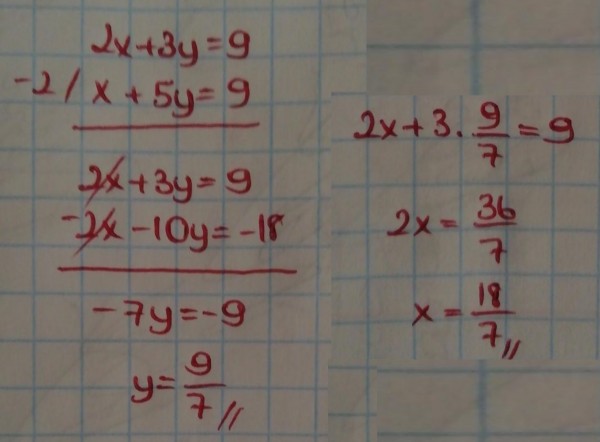 2x+3y=9
-2/ x+5y=9
2x+3y=9
-2x-10y=-18
-7y=-9
y=9/7//
2x+3.9/7=9
2x=36/7
x=18/7//